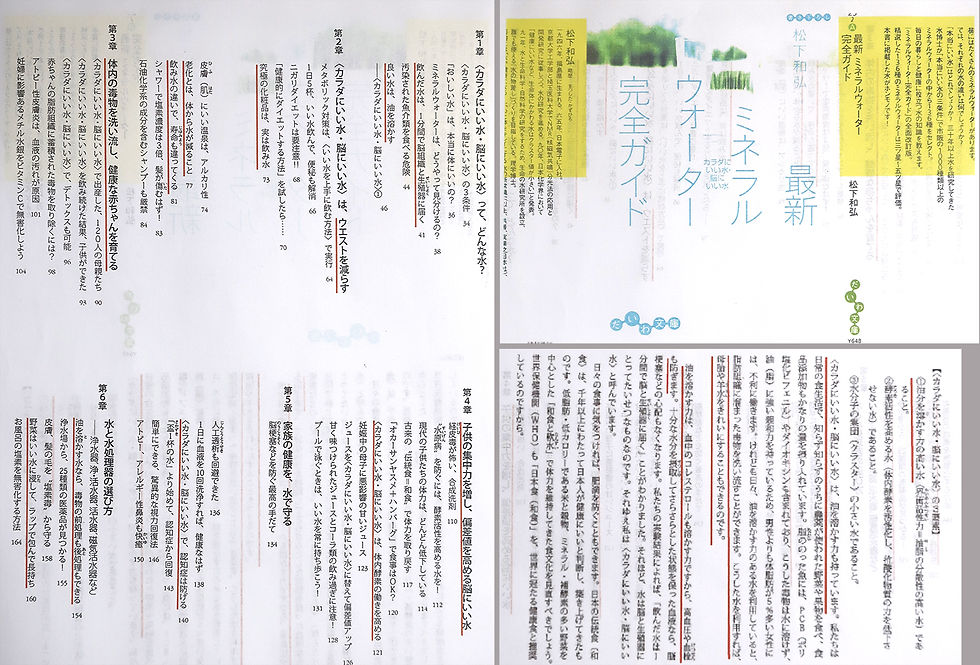 第1章
〈カラダにいい水・脳にいい水〉って、どんな水?
〈カラダにいい水・脳にいい水〉の3条件 34
「おいしい水」は、本当に体にいいの? 36
ミネラルウォーターは、どうやって見分けるの? 38
飲んだ水は、1分間で脳組織と生殖器に届く 41
汚染された魚介類を食べる危険 44
良い水は、油を溶かす
――〈カラダにいい水・脳にいい水〉① 46
第2章
〈カラダにいい水・脳にいい水〉は、ウエストを減らす
メタボリック対策は、〈いい水を上手に飲む方法〉で実行 64
1日6杯、いい水飲んで、便秘も解消 66
ニガリダイエットは要注意! 68
「健康的にダイエットする方法」を試したら…… 70
究極の化粧品は、実は飲み水 73
皮膚(肌)にいい温泉は、アルカリ性 74
老化とは、体から水が減ること 77
飲み水の違いで、寿命も違ってくる 81
シャワーで塩素濃度は3倍、髪が傷むはず! 83
石油化学系の成分を含むシャンプーも厳禁 84
第3章
体内の毒物を洗い流し、健康な赤ちゃんを育てる
〈カラダにいい水・脳にいい水〉で出産した、120人の母親たち 90
〈カラダにいい水・脳にいい水〉を飲み続けた結果、子供ができた 93
〈カラダにいい水・脳にいい水〉で、デトックスも可能 96
赤ちゃんの脂肪組織に蓄積された毒物を取り除くには? 98
アトピー性皮膚炎は、血液の汚れが原因 101
妊婦に影響あるメチル水銀をビタミンCで無害化しよう 104
第4章
子供の集中力を増し、偏差値を高める脳にいい水
経皮毒が怖い、合成洗剤 110
「水原病」を防ぐには、酵素活性を高める水を! 112
現代の子供たちの体力は、どんどん低下している 114
古来の「伝統食=和食」で体力を取り戻す 117
「オカーサンヤスメ+ハンバーグ」で食事はOK? 120
〈カラダにいい水・脳にいい水〉は、体内酵素の働きを高める 121
妊娠中の母子に悪影響の甘いジュース 123
ジュースを〈カラダにいい水・脳にいい水〉に替えて偏差値アップ 126
甘く味つけられたジュースとコーラ類の飲み過ぎに注意! 128
プールで泳ぐときは、いい水を常に持ち歩こう! 131
第5章
家族の健康を、水で守る
脳梗塞などを防ぐに最高の手だて 134
人工透析も回避できた 136
1日に血液を10回洗浄すれば、健康なはず 138
〈カラダにいい水・脳にいい水〉で、認知症は防げる 140
「盃1杯の水」より始めて、認知症から回復 143
簡単にできる、驚異的な視力回復法 146
アトピー、アレルギー性鼻炎も快癒 150
第6章
水と水処理器の選び方
――浄水器、浄・活水器、活水器、磁気活水器など
油を溶かす水なら、毒物の前処理も後処理もできる 154
浄水場から、25種類の医薬品が見つかる! 155
皮膚、髪の毛を〝塩素毒〟から守る 158
野菜はいい水に浸して、ラップで包んで長持ち 160
お風呂の塩素を無害化する方法 164
最新 ミネラルウォーター
完全ガイド
松下和弘
だいわ文庫
¥648
最新
ミネラル
ウォーター
完全ガイド
カラダに
いい水
脳に
いい水
松下和弘
だいわ文庫
松下和弘
【〈カラダにいい水・脳にいい水〉の3要素】
①油分を溶かす力の高い水(乳化活性力=油脂の分散性の高い水)であ
ること。
②酵素活性を高める水(体内酵素を活性化し、過酸化物質の力を低下さ
せない水)であること。
③水分子の集団(クラスター)の小さい水であること。
〈カラダにいい水・脳にいい水〉は、油を溶かす力を持っています。私たちは
日常の食生活で、知らず知らずのうちに農薬が使われた野菜や果物を食べ、食
品添加物もかなりの量を摂り入れています。脂ののった魚には、PCB(ポリ
塩化ビフェニル)やダイオキシンも含まれており、こうした毒物は水に溶けず、
油(脂)に強い親和力を持っているため、男性よりも体脂肪が5%多い女性に
は、不利に働きます。けれども日々、油を溶かす力のある水を利用していると、
脂肪組織に溜まった毒物を洗い流すことができます。こうした水を利用すれば、
母胎や羊水をきれいにすることもできるのです。
油を溶かす力は、血中のコレステロールも溶かす力ですから、高血圧や血栓
も防ぎます。十分な水分を摂取してさらさらとした状態を保った血液なら、脳
梗塞などの心配もなくなります。私たちの実験結果によれば、「飲んだ水は1
分間で脳と生殖器に届く」ことがわかりました。それほど、水は脳と生殖器に
とってたいせつなものなのです。それゆえ私は〈カラダにいい水・脳にいい
水〉と呼んでいます。
日々の食事に気をつければ、肥満を防ぐこともできます。日本の伝統食(和
食)は、千年以上にわたって日本人が健康にいいと判断し、築き上げてきたも
のです。低脂肪・低カロリーである米と穀物、ミネラル・補酵素の多い野菜を
中心とした「和食と軟水」で体力を維持してきた食文化を見直すべきでしょう。
世界保健機関(WHO)も「日本食(和食)を、世界に冠たる健康食と推奨
しているのですから。